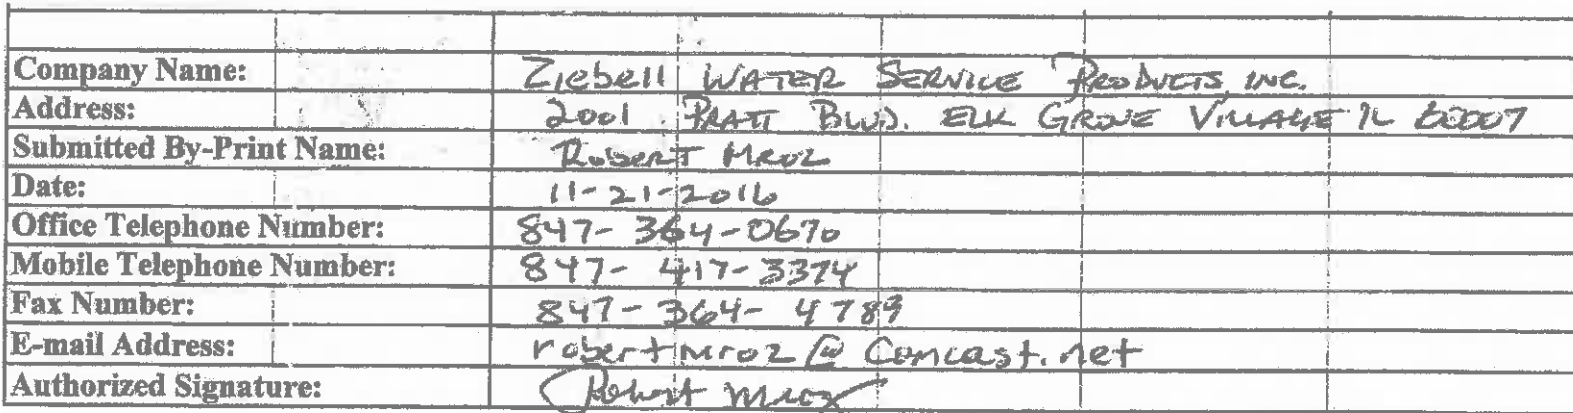 Company Name: Ziebell WATER SERVICE PRODUCTS, INC.
Address: 2001 PRATT BLVD. ELK GROVE VILLAGE IL 60007
Submitted By-Print Name: Robert Mroz
Date: 11-21-2016
Office Telephone Number: 847-364-0670
Mobile Telephone Number: 847-417-3374
Fax Number: 847-364-4789
E-mail Address: robertmroz@comcast.net
Authorized Signature: Robert Mroz